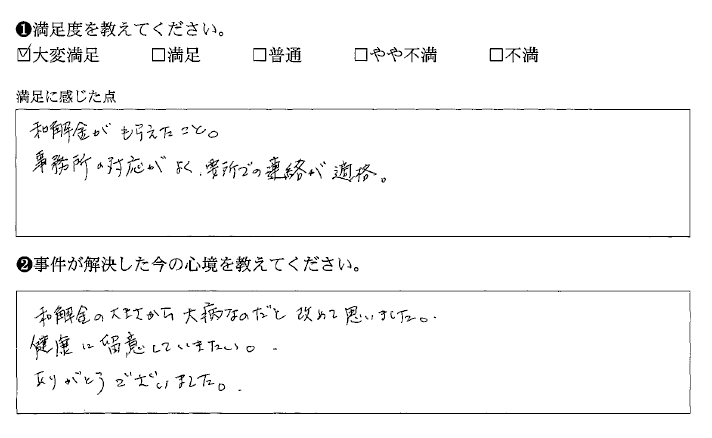 ❶満足度を教えてください。
☑大変満足 □満足 □普通 □やや不満 □不満
満足に感じた点
和解金がもらえたこと。
事務所の対応がよく、要所での連絡が適格。
❷事件が解決した今の心境を教えてください。
和解金の大きさから大病なのだと改めて思いました。
健康に留意していきたい。
ありがとうございました。